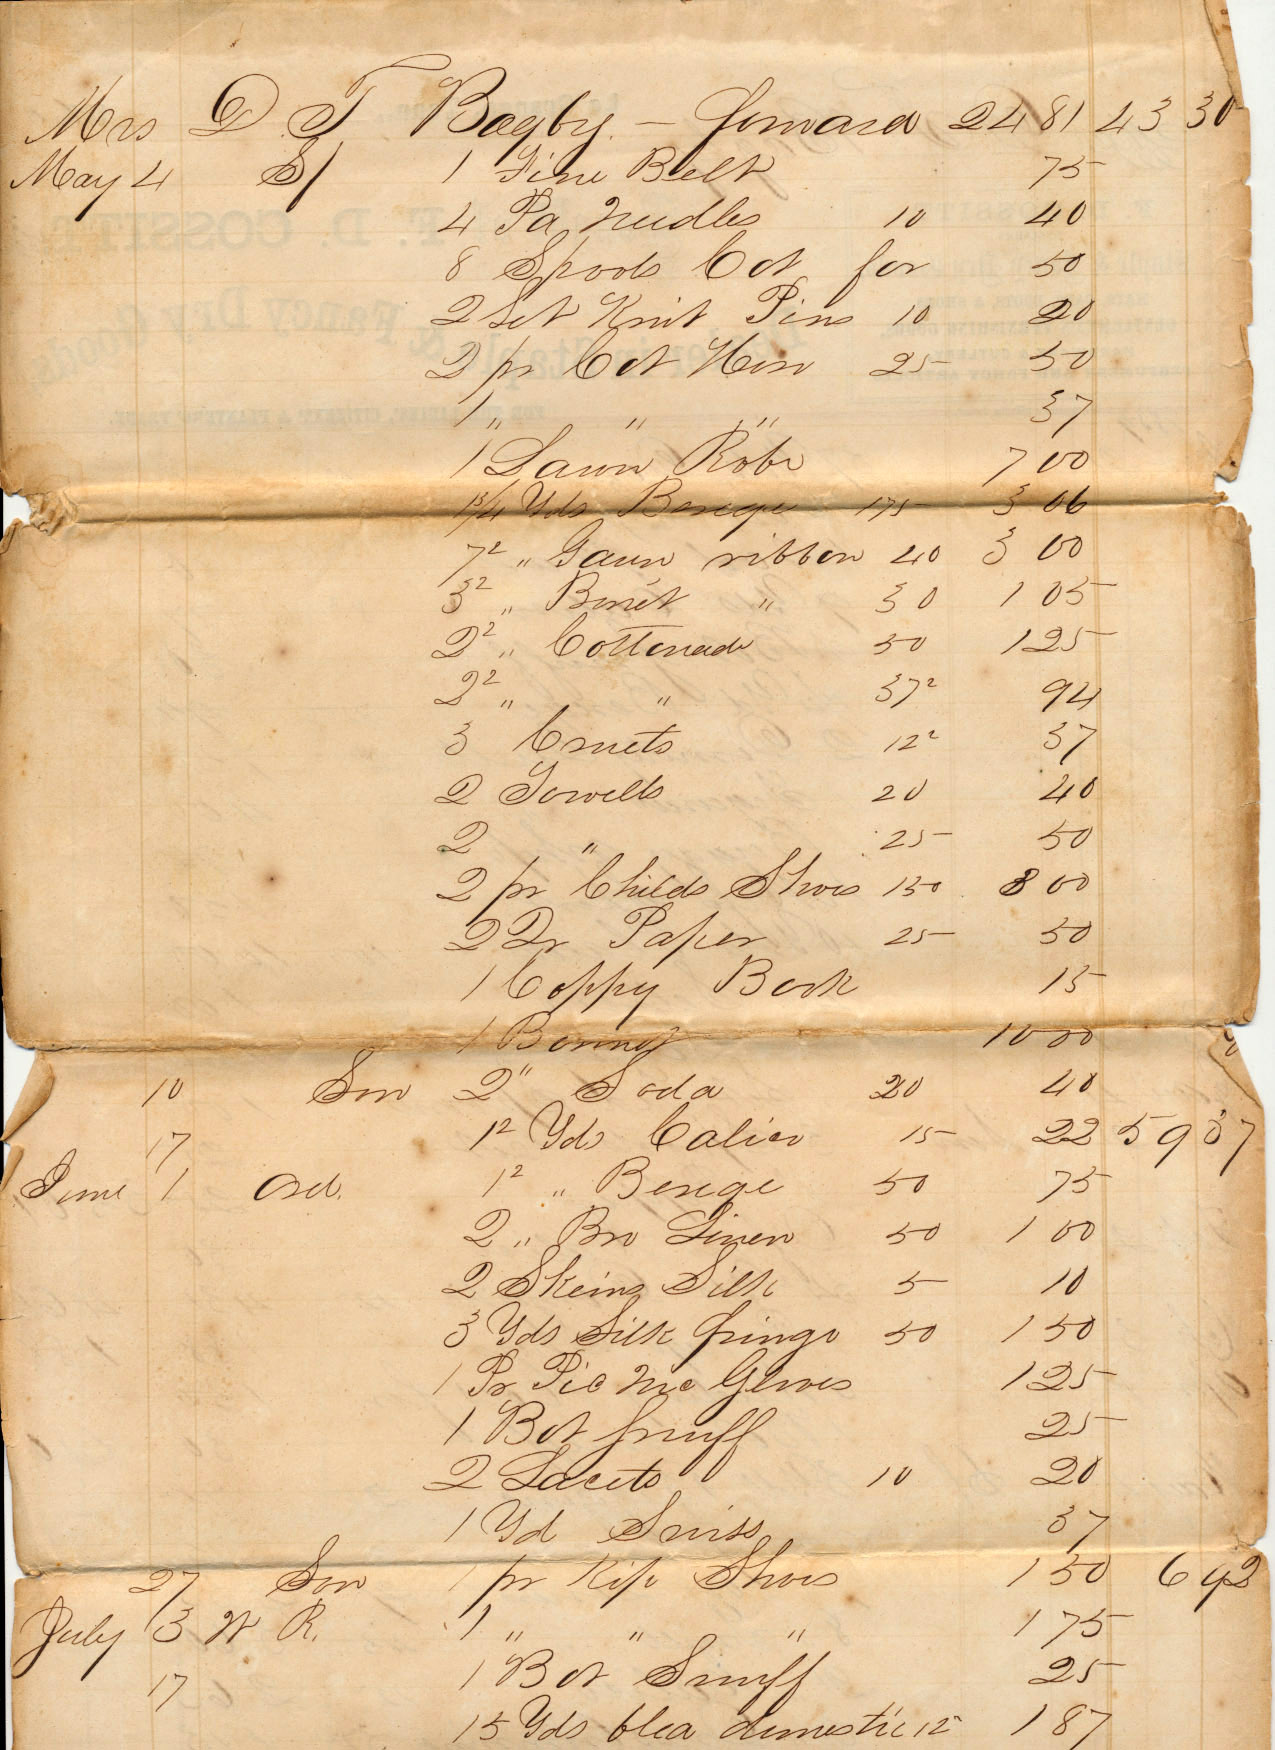 Mrs D. T Bagby. — forward 24 81 43 30
May 4 S/ 1 Fine Belt 75
4 Pa Needles 10 40
8 Spools Cot for 50
2 Set Knit Pins 10 20
2 pr Cot Hose 25 50
1 " " " 37
1 Lawn Robe 7 00
1 3/4 Yds Berege 175 3 06
7² " Gaun ribbon 40 3 00
3² " Bonet " 30 1 05
2² " Cottonade 50 1 25
2² " " 37² 94
3 Cruets 12² 37
2 Towells 20 40
2 " 25 50
2 pr Childs Shoes 150 3 00
2 Qr Paper 25 50
1 Coppy Book 15
1 Bonnet 10 00
10 Son 2" Soda 20 40
17 1² Yds Calico 15 22 59 37
June 1 Ord. 1² " Berege 50 75
2 " Bro Linen 50 1 00
2 Skeins Silk 5 10
3 Yds Silk fringe 50 1 50
1 Pr Pic Nic Gloves 1 25
1 Bot Snuff 25
2 Lacets 10 20
1 Yd Swiss 37
27 Son 1 pr Kip Shoes 1 50 6 92
July 3 W R. 1 " " " 1 75
17 1 Bot Snuff 25
15 Yds blea domestic 12² 1 87
F. D. GOSSIT
& Fancy Dry Goods